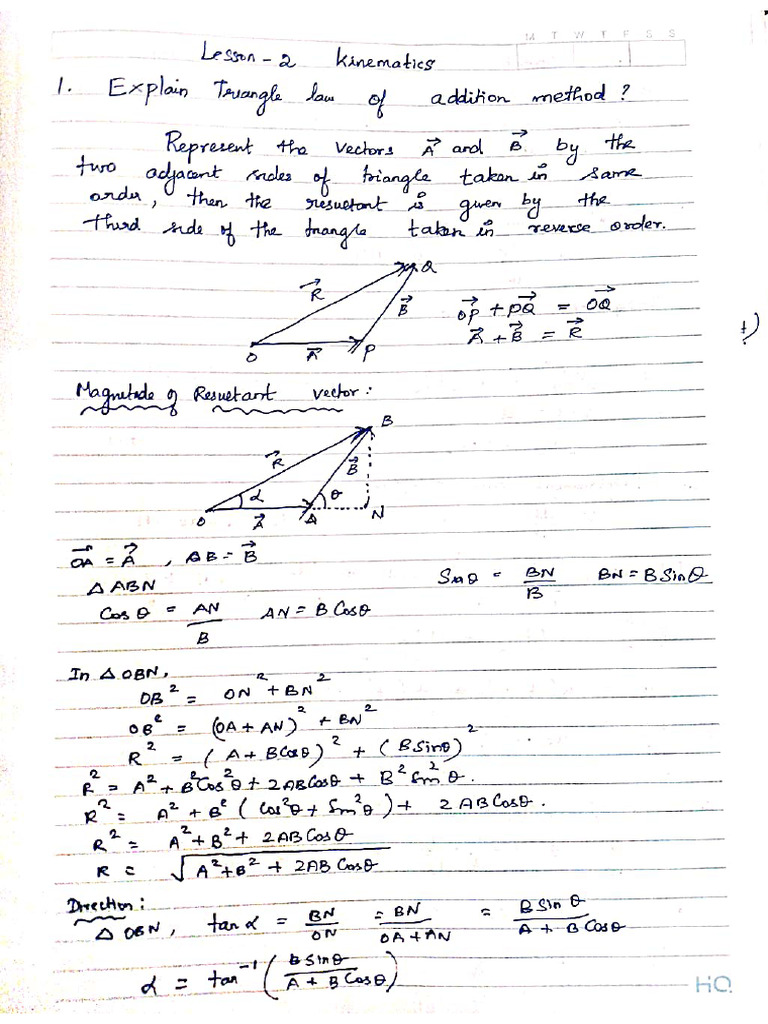 M T W T F S S
Lesson - 2 Kinematics
1. Explain Triangle law of addition method ?
Represent the vectors A⃗ and B⃗ by the
two adjacent sides of triangle taken in same
order, then the resultant is given by the
third side of the triangle taken in reverse order.
Q
R⃗
B⃗
O A⃗ P
OP⃗ + PQ⃗ = OQ⃗
A⃗ + B⃗ = R⃗
Magnitude of Resultant vector :
B
R⃗
B⃗
α θ
O A⃗ A N
OA⃗ = A⃗ , AB = B⃗
△ ABN
Cos θ = AN/B AN = B Cosθ
Sin θ = BN/B BN = B Sin θ
In △ OBN,
OB² = ON² + BN²
OB² = (OA + AN)² + BN²
R² = (A + BCosθ)² + (BSinθ)²
R² = A² + B²Cos²θ + 2ABCosθ + B² Sin²θ.
R² = A² + B² (Cos²θ + Sin²θ) + 2ABCosθ.
R² = A² + B² + 2AB Cosθ
R = √(A² + B² + 2AB Cosθ)
Direction :
△ OBN, tan α = BN/ON = BN/(OA + AN) = B Sin θ/(A + B Cosθ)
α = tan⁻¹ (B Sinθ/(A + B Cosθ))
HQ